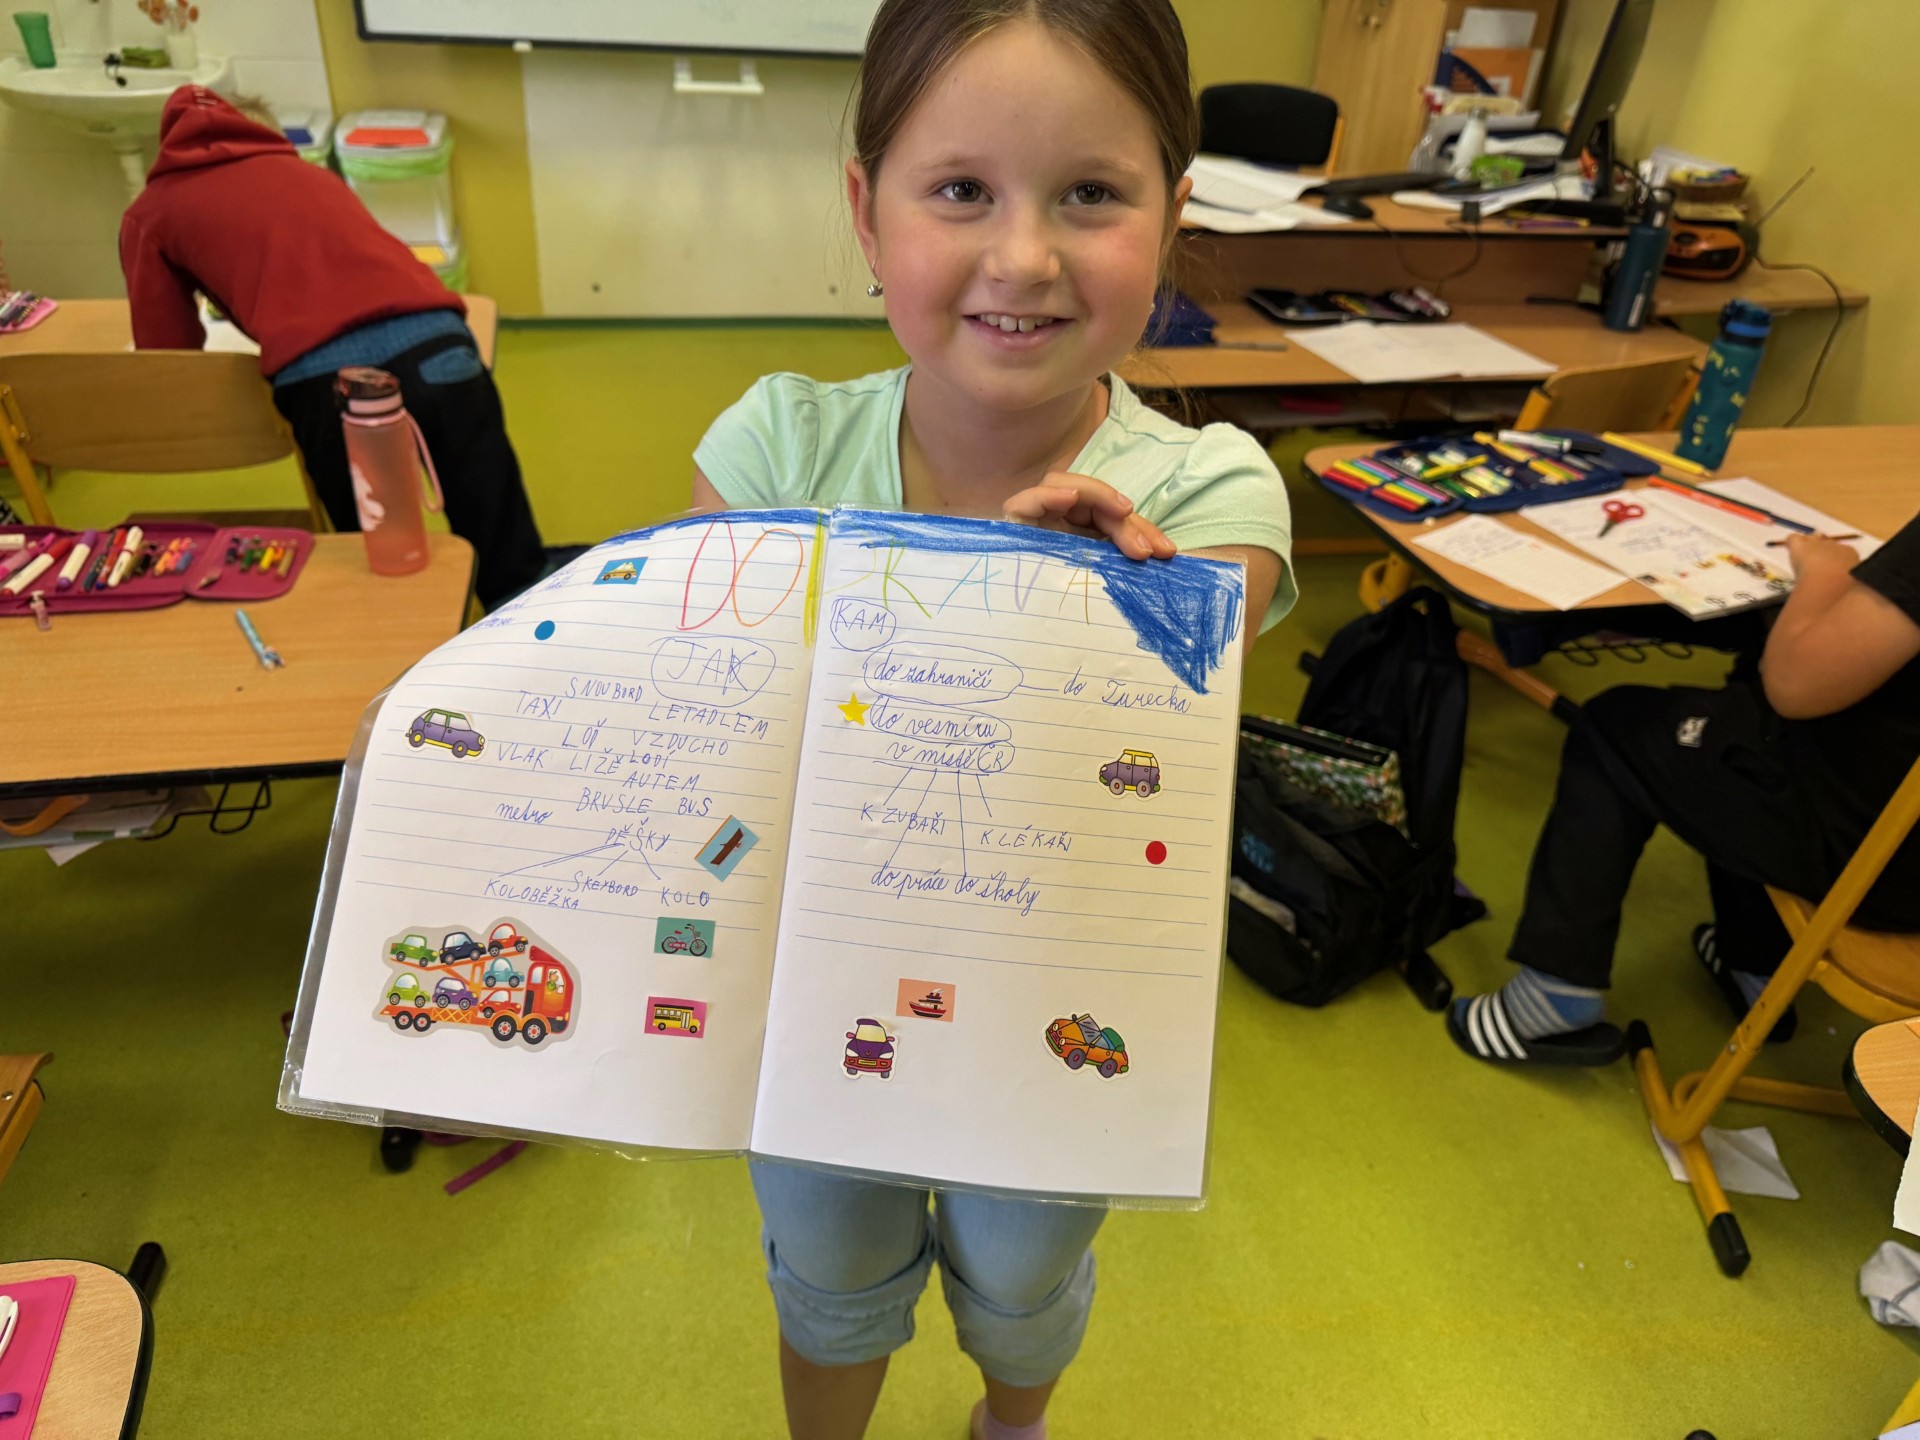 DOPRAVA
JAK
SNOUBORD
TAXI
LETADLEM
LOĎ VZDUCHO
LODÍ
VLAK LIŽĚ
AUTEM
BRUSLE BUS
metro
PĚŠKY
KOLOBĚŽKA
SKEYBORD
KOLO
KAM
do zahraničí
do Turecka
do vesmíru
v místě ČR
K ZUBAŘI
K LÉKAŘI
do práce do školy